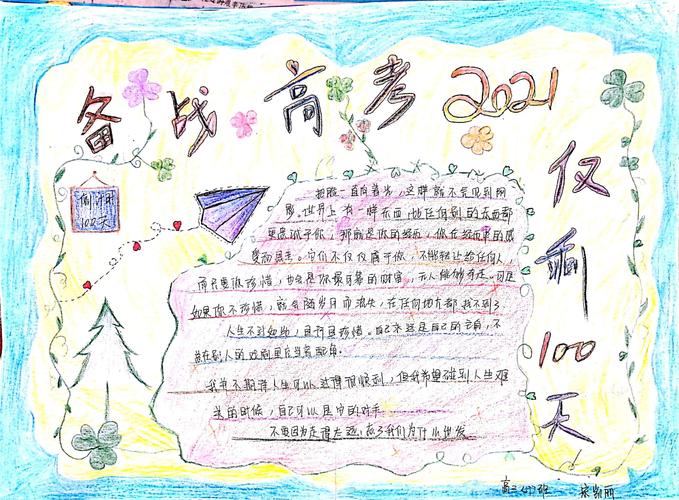 备战高考2021
仅剩100天
倒计时
100天
把脸一直向着阳光，这样就不会见到阴
影。世界上有一样东西，比任何别的东西都
更忠诚于你，那就是你的经历，你在经历中的感
受和思考。它们不仅仅属于你，不能转让给任何人，
而只要你珍惜，也会是你最可靠的财富，无人能够夺走。可是
如果你不珍惜，就会随岁月而流失，在任何地方都找不到了
人生不过如此，且行且珍惜。自己永远是自己的主角，不
要在别人的戏剧里充当着配角。
我并不期待人生可以过得很顺利，但我希望碰到人生难
关的时候，自己可以是它的对手
不要因为走得太远，忘了我们为什么出发
高三(7)班